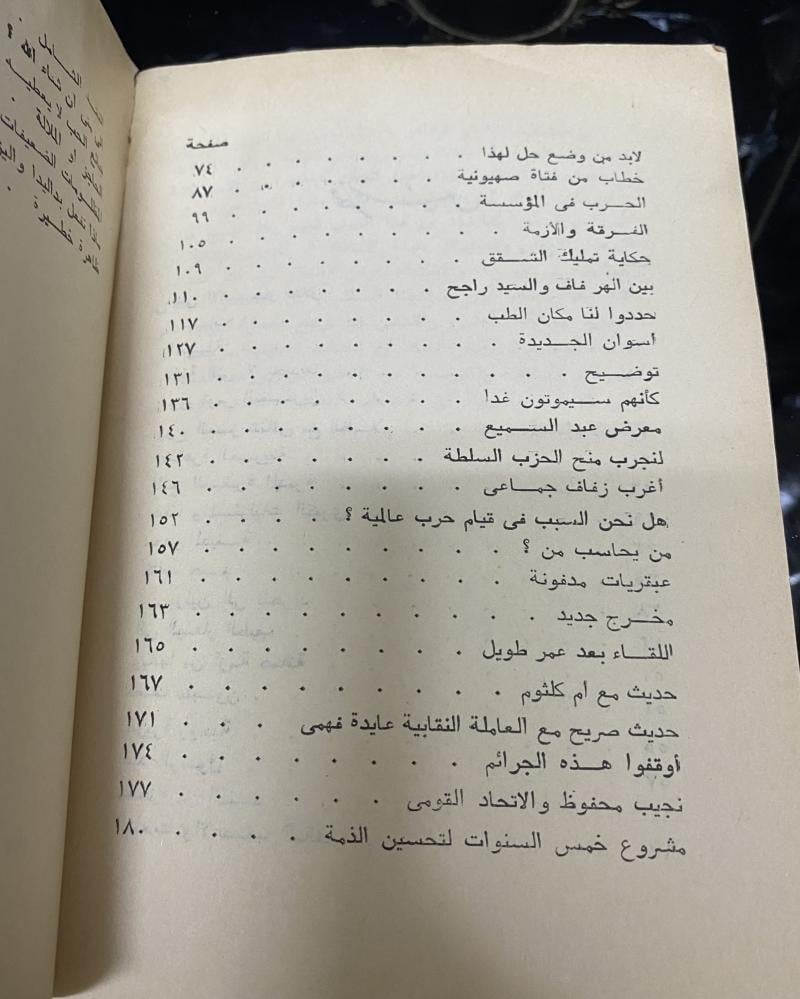 الشامل .
ان شاء الله ؟
الحب لا يعطيه
او
المظلومات الضعيفات
ماذا تفعل بداليدا
ظاهرة خطيرة .
صفحة
لابد من وضع حل لهذا . . . . . . . ٧٤
خطاب من فتاة صهيونية . . . . . . ٨٧
الحرب فى المؤسسة . . . . . . ٩٩
الفرقة والأزمة . . . . . . . ١٠٥
حكاية تمليك الشقق . . . . . . . ١٠٩
بين الهر فاف والسيد راجح . . . . . . ١١٠
حددوا لنا مكان الطب . . . . . . . ١١٧
أسوان الجديدة . . . . . . . ١٢٧
توضيح . . . . . . . . . ١٣١
كأنهم سيموتون غدا . . . . . . . ١٣٦
معرض عبد السميع . . . . . . . ١٤٠
لنجرب منح الحزب السلطة . . . . . . . ١٤٢
أغرب زفاف جماعى . . . . . . . ١٤٦
هل نحن السبب فى قيام حرب عالمية ؟ . . . . ١٥٢
من يحاسب من ؟ . . . . . . . . ١٥٧
عبقريات مدفونة . . . . . . . . ١٦١
مخرج جديد . . . . . . . . . ١٦٣
اللقاء بعد عمر طويل . . . . . . . ١٦٥
حديث مع ام كلثوم . . . . . . . . ١٦٧
حديث صريح مع العاملة النقابية عايدة فهمى . . . ١٧١
أوقفوا هذه الجرائم . . . . . . . ١٧٤
نجيب محفوظ والاتحاد القومى . . . . . . ١٧٧
مشروع خمس السنوات لتحسين الذمة . . . . ١٨٠